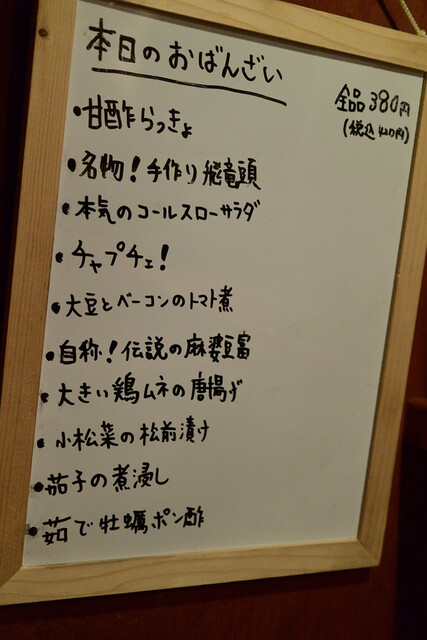 本日のおばんざい
全品380円
(税込420円)
・甘酢らっきょ
・名物！手作り飛竜頭
・本気のコールスローサラダ
・チャプチェ！
・大豆とベーコンのトマト煮
・自称！伝説の麻婆豆富
・大きい鶏ムネの唐揚げ
・小松菜の松前漬け
・茄子の煮浸し
・茹で牡蠣ポン酢